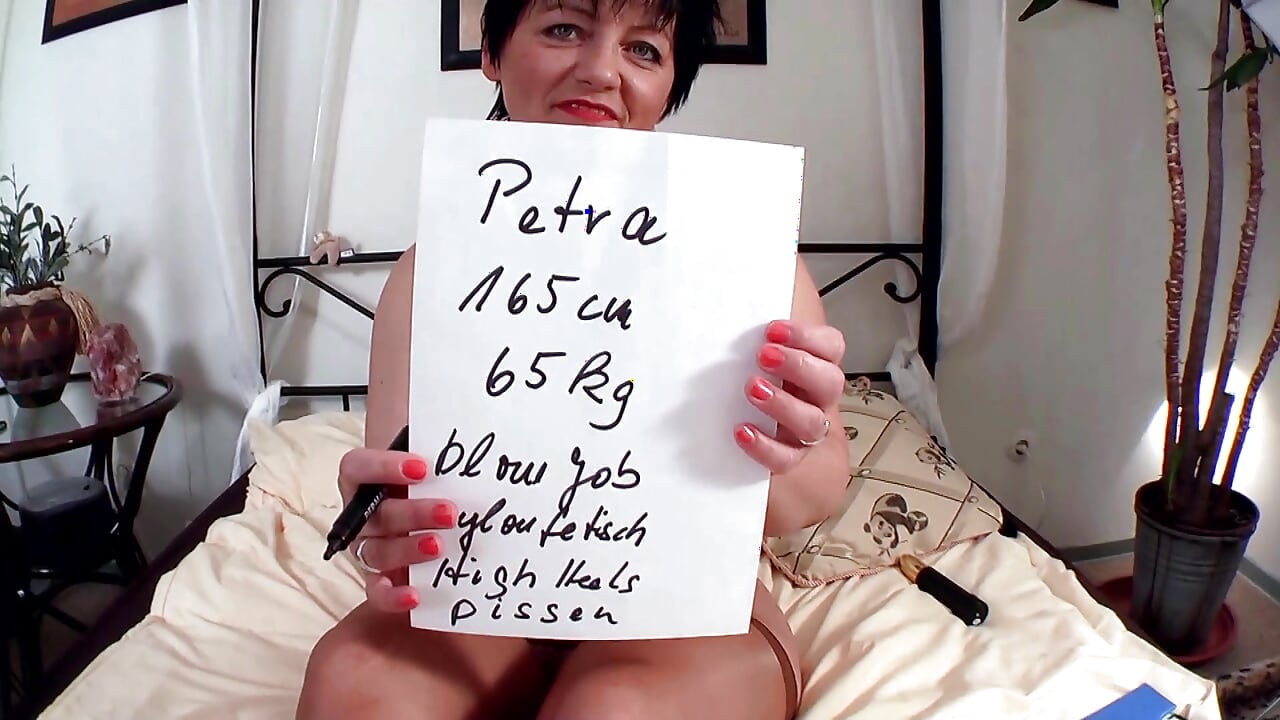 Petra
165 cm
65 kg
blow Job
ylonfetisch
High Heels
pissen